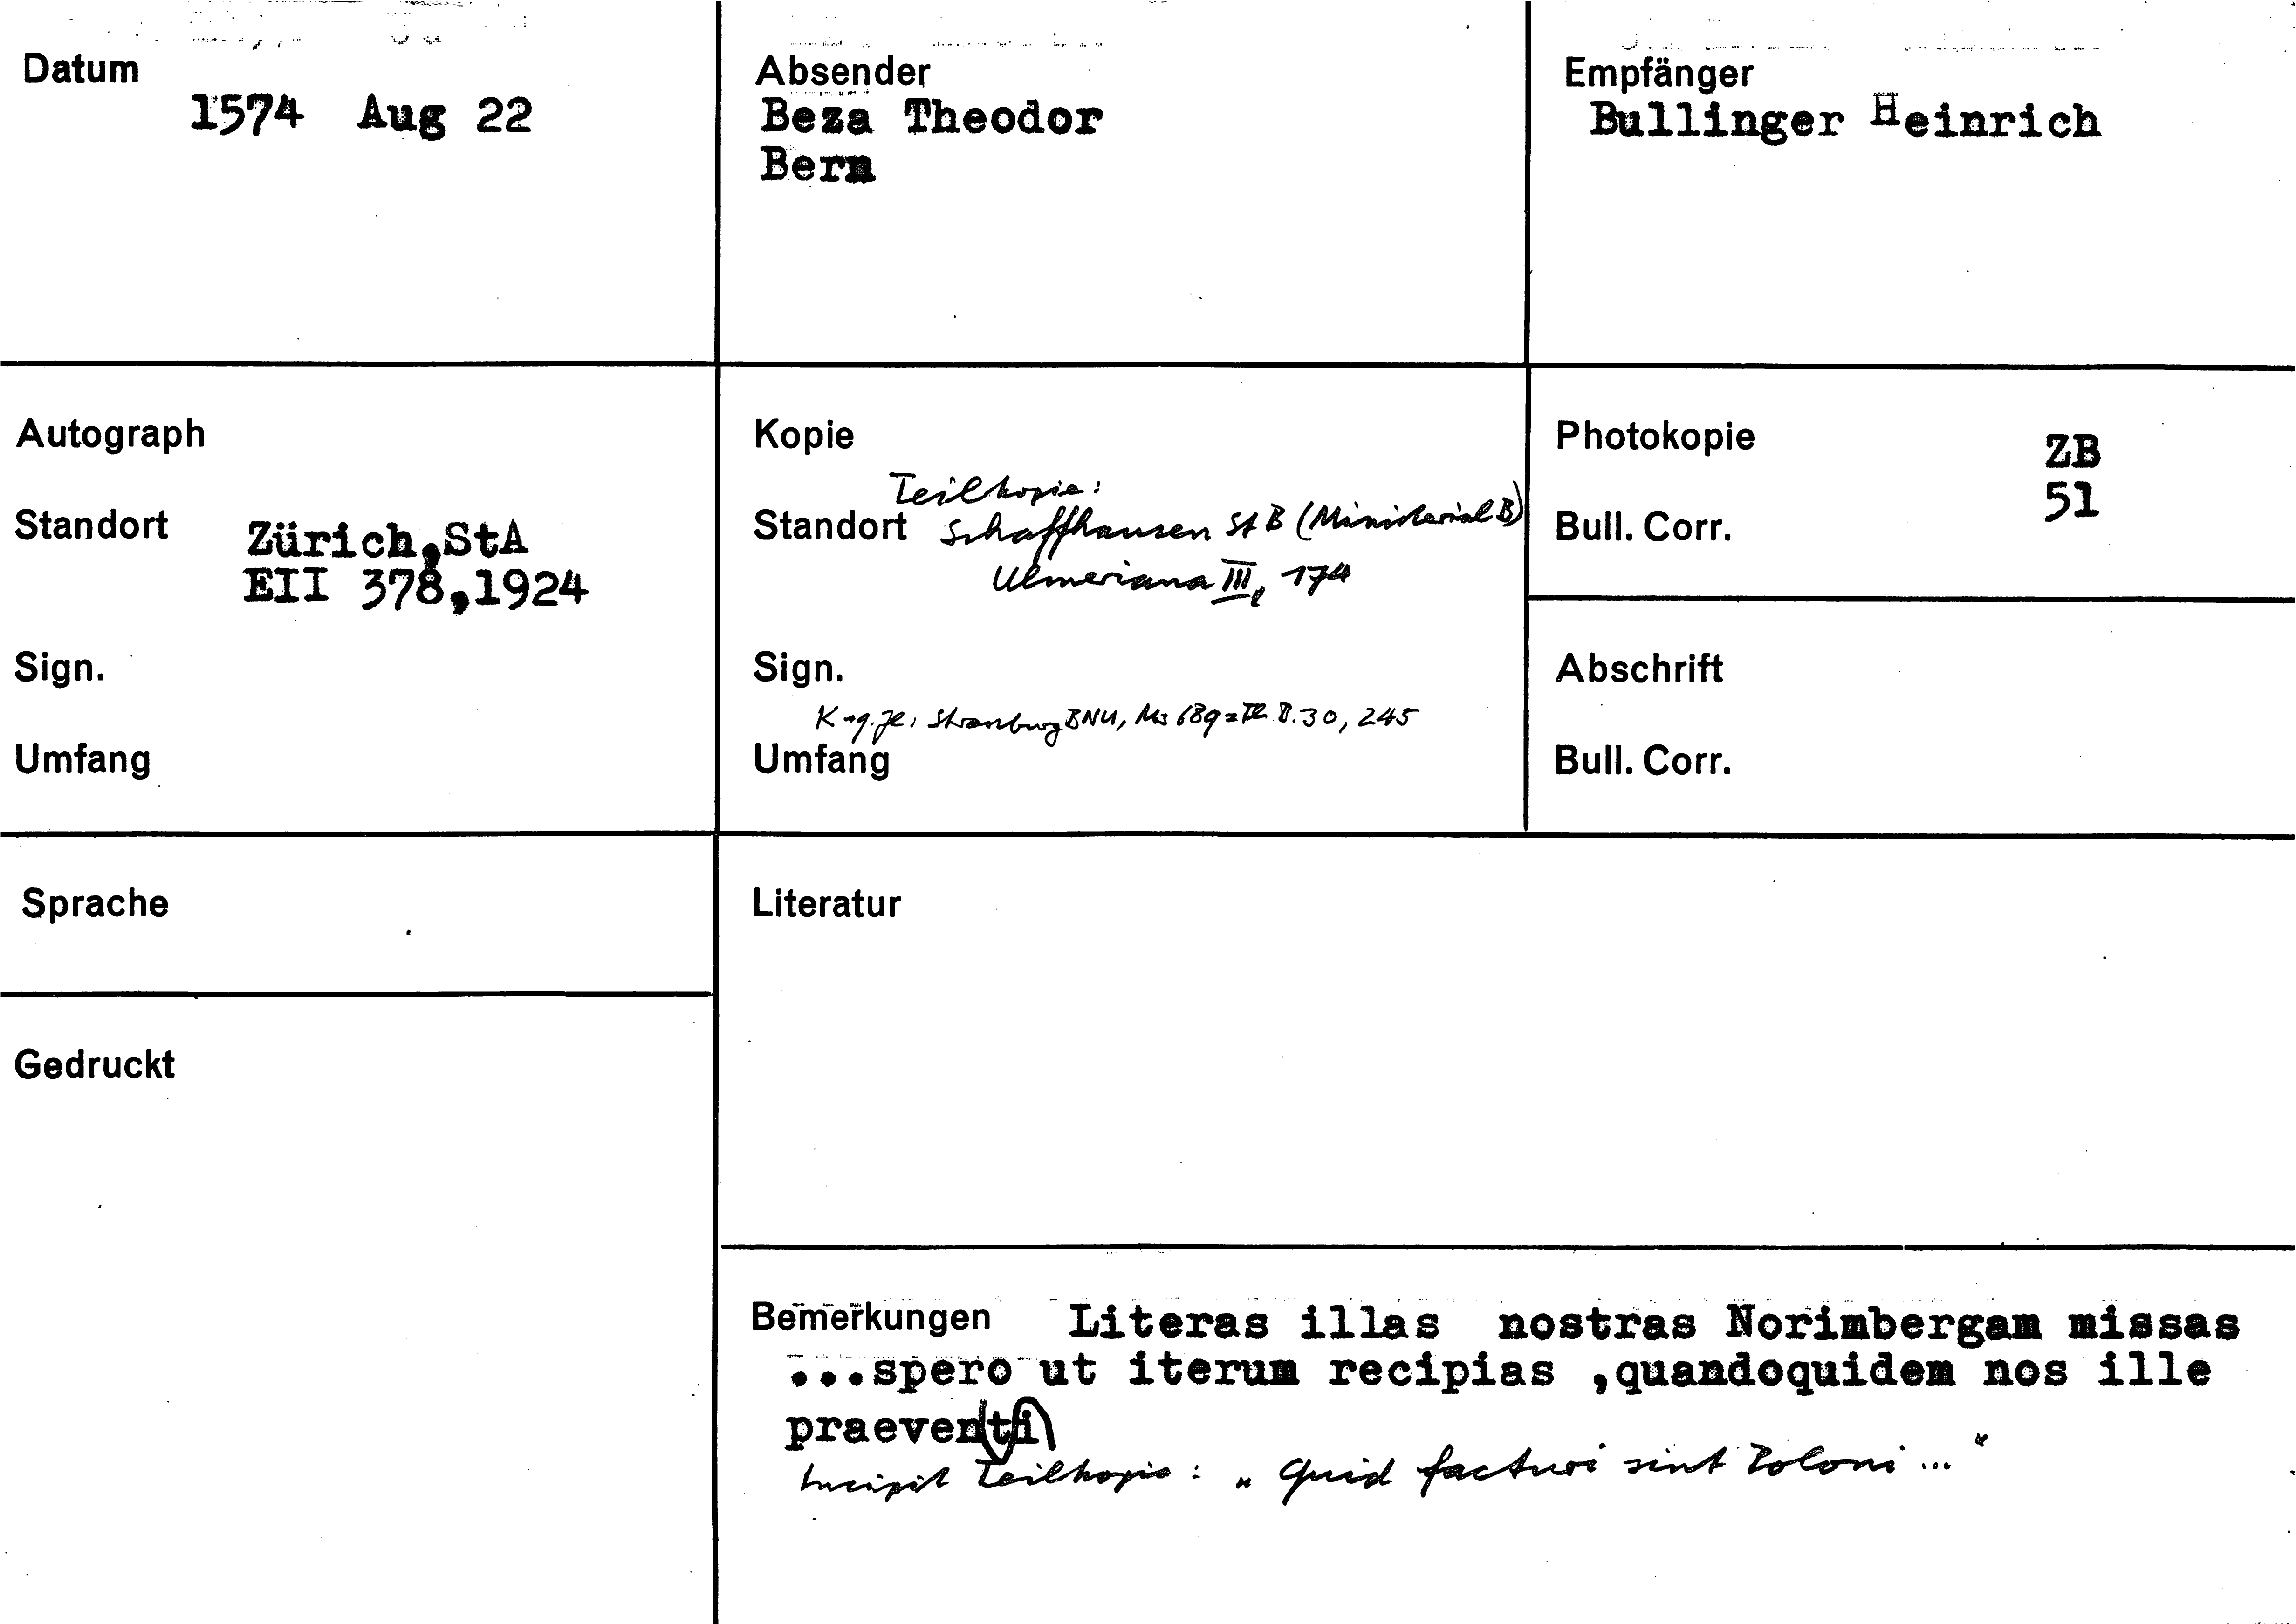 Datum
1574 Aug 22
Absender
Beza Theodor
Bern
Empfänger
Bullinger Heinrich
Autograph
Standort Zürich,StA
EII 378,1924
Sign.
Umfang
Kopie
Teilkopie:
Standort Schaffhausen StB (Ministerial B)
Ulmeriana III, 174
Sign.
Straßburg BNU, Ms 689 = 30, 245
Umfang
Photokopie ZB
Bull. Corr. 51
Abschrift
Bull. Corr.
Sprache
Gedruckt
Literatur
Bemerkungen Literas illas nostras Norimbergam missas
...spero ut iterum recipias ,quandoquidem nos ille
praeverti
Incipit Teilkopie: „Quid facturi sint Poloni..."